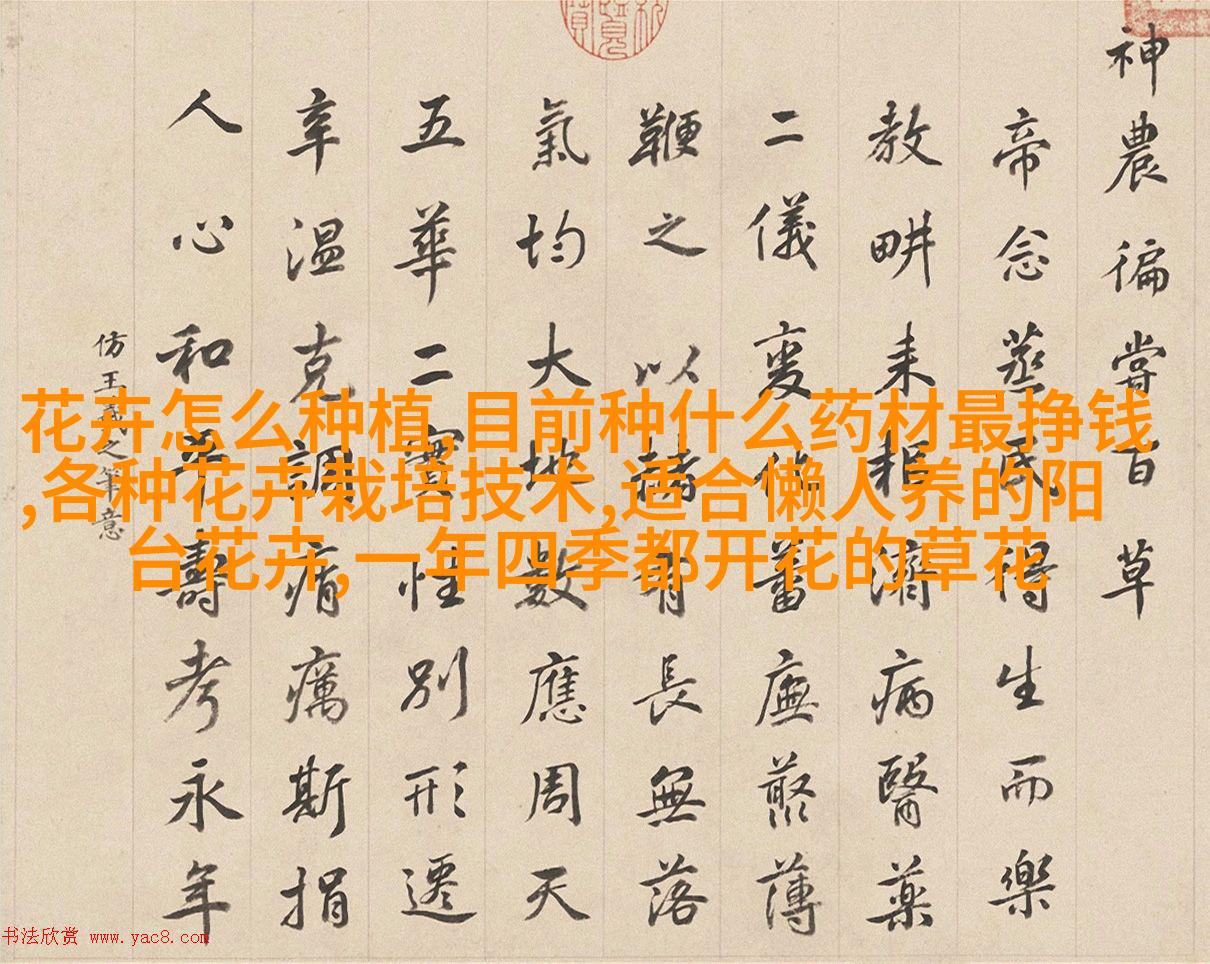 神農徧嘗百草
帝念蒸民得生而樂
教畊耒耜濟病醫藥
二儀變化蕃廡藂薄
鞭之以赭長無落
氣均大地數應周天
五華二實性別形遷
辛溫克調痟癘斯捐
人心和平壽考永年
仿王羲之筆意
花卉怎么种植,目前种什么药材最挣钱
,各种花卉栽培技术,适合懒人养的阳
台花卉,一年四季都开花的草花
书法欣赏 www.yac8.com